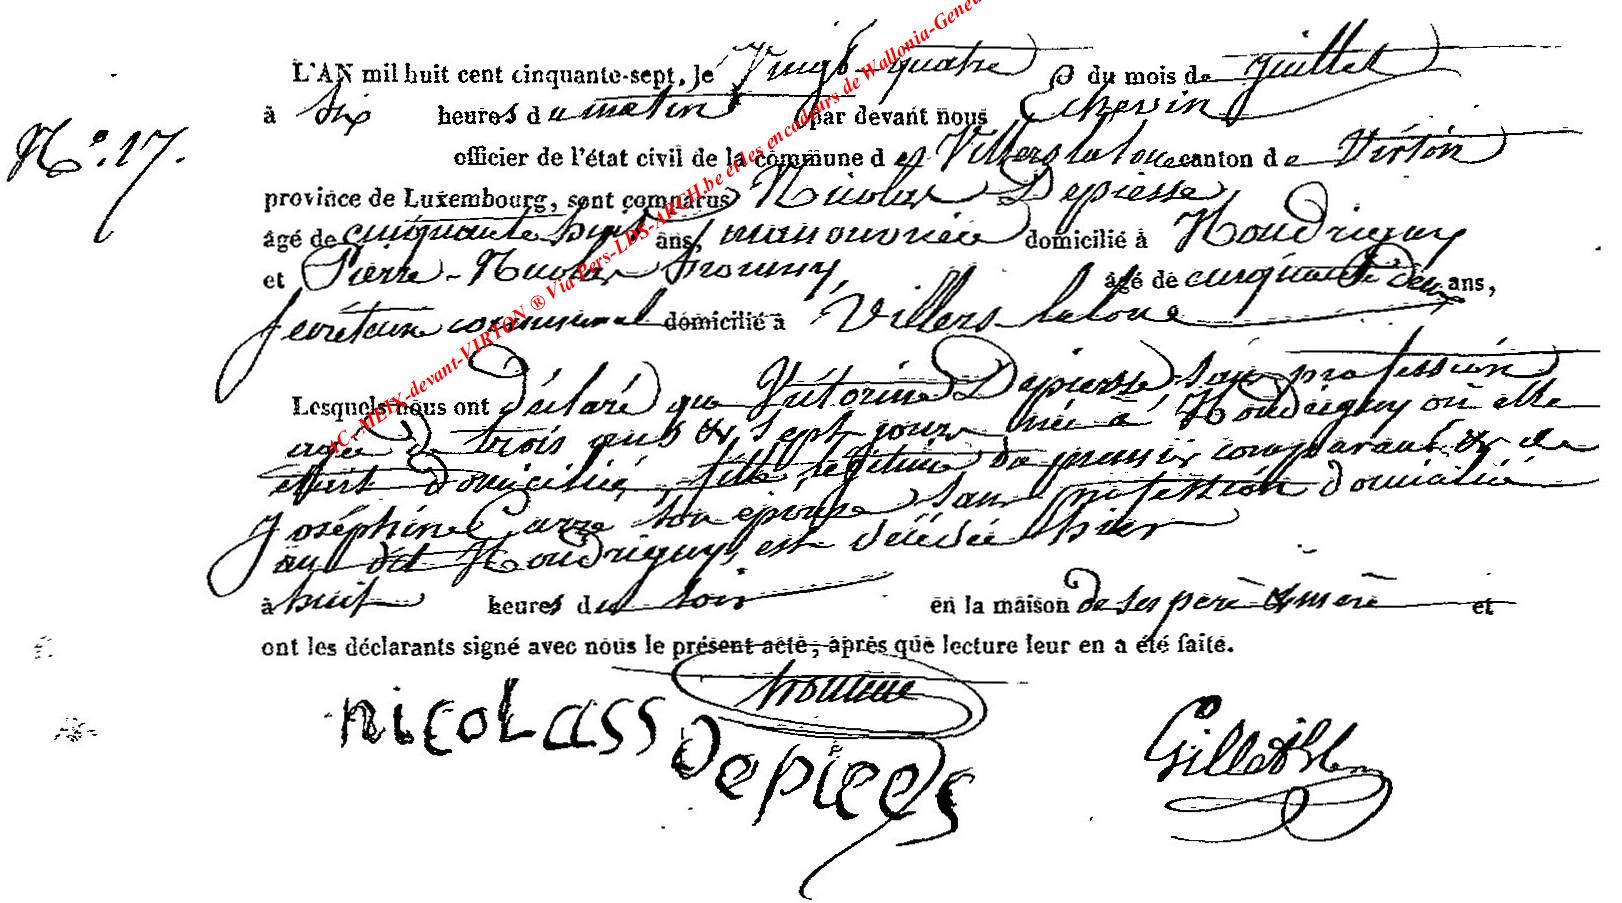 L'AN mil huit cent cinquante-sept, le Vingt-quatre du mois de Juillet
à Six heures du matin par devant nous Echevin
N°. 17.
officier de l'état civil de la commune de Villers la loue canton de Virton
province de Luxembourg, sont comparus Nicolas Depiesse
âgé de cinquante huit ans, manouvrier domicilié à Houdrigny
et Pierre-Nicolas âgé de cinquante deux ans,
secrétaire communal domicilié à Villers-laloue
Lesquels nous ont déclaré que Victorine Depiesse sans profession
agée de trois ans & sept jours née à Houdrigny où elle
était domiciliée, fille légitime du premier comparant & de
Joséphine son épouse sans profession domiciliée
au dit Houdrigny, est décédée hier
à huit heures du soir en la maison de ses père & mère et
ont les déclarants signé avec nous le présent acte, après que lecture leur en a été faite.
nicoLass
Depiees
AC-MEIX-devant-VIRTON ® Via Pers-LDS-ARCH.be et les encadeurs de Wallonia-Genea